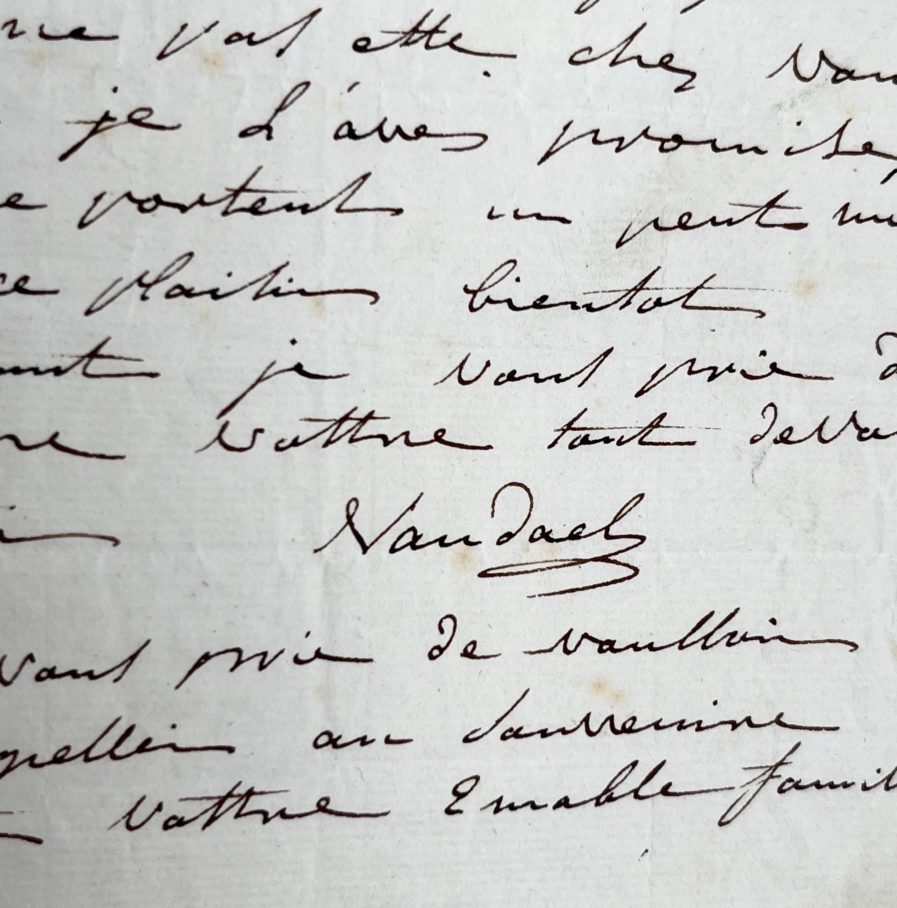 ne vas ette chez Van
je l'aves promise,
e portent un peut mi
ce plaisir bientot
ant je vous prie d
re vottre tout deva
Vandael
vous prie de voulloir
appeller au souvenire
vottre Emable famil